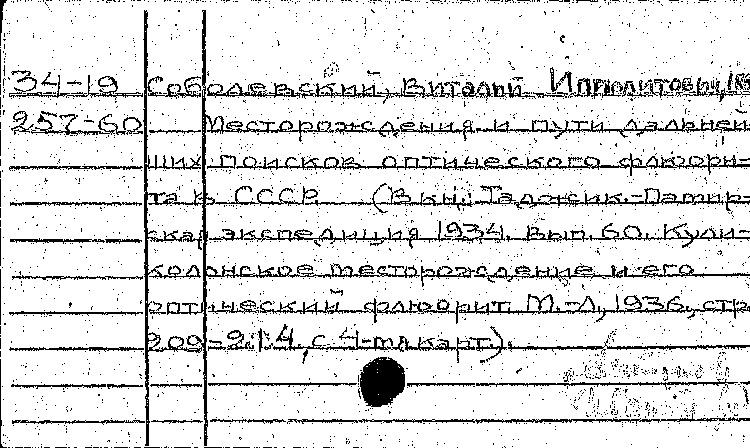 34-19 Соболевский, Виталий Ипполитович, 18
257-60 Месторождения и пути дальней-
ших поисков оптического флюори-
та в СССР. (В кн.: Таджик.-Памир-
ская экспедиция 1934. Вып. 60. Кули-
колонское месторождение и его
оптический флюорит. М.-Л., 1936, стр.
209-214, с 4-мя карт.).